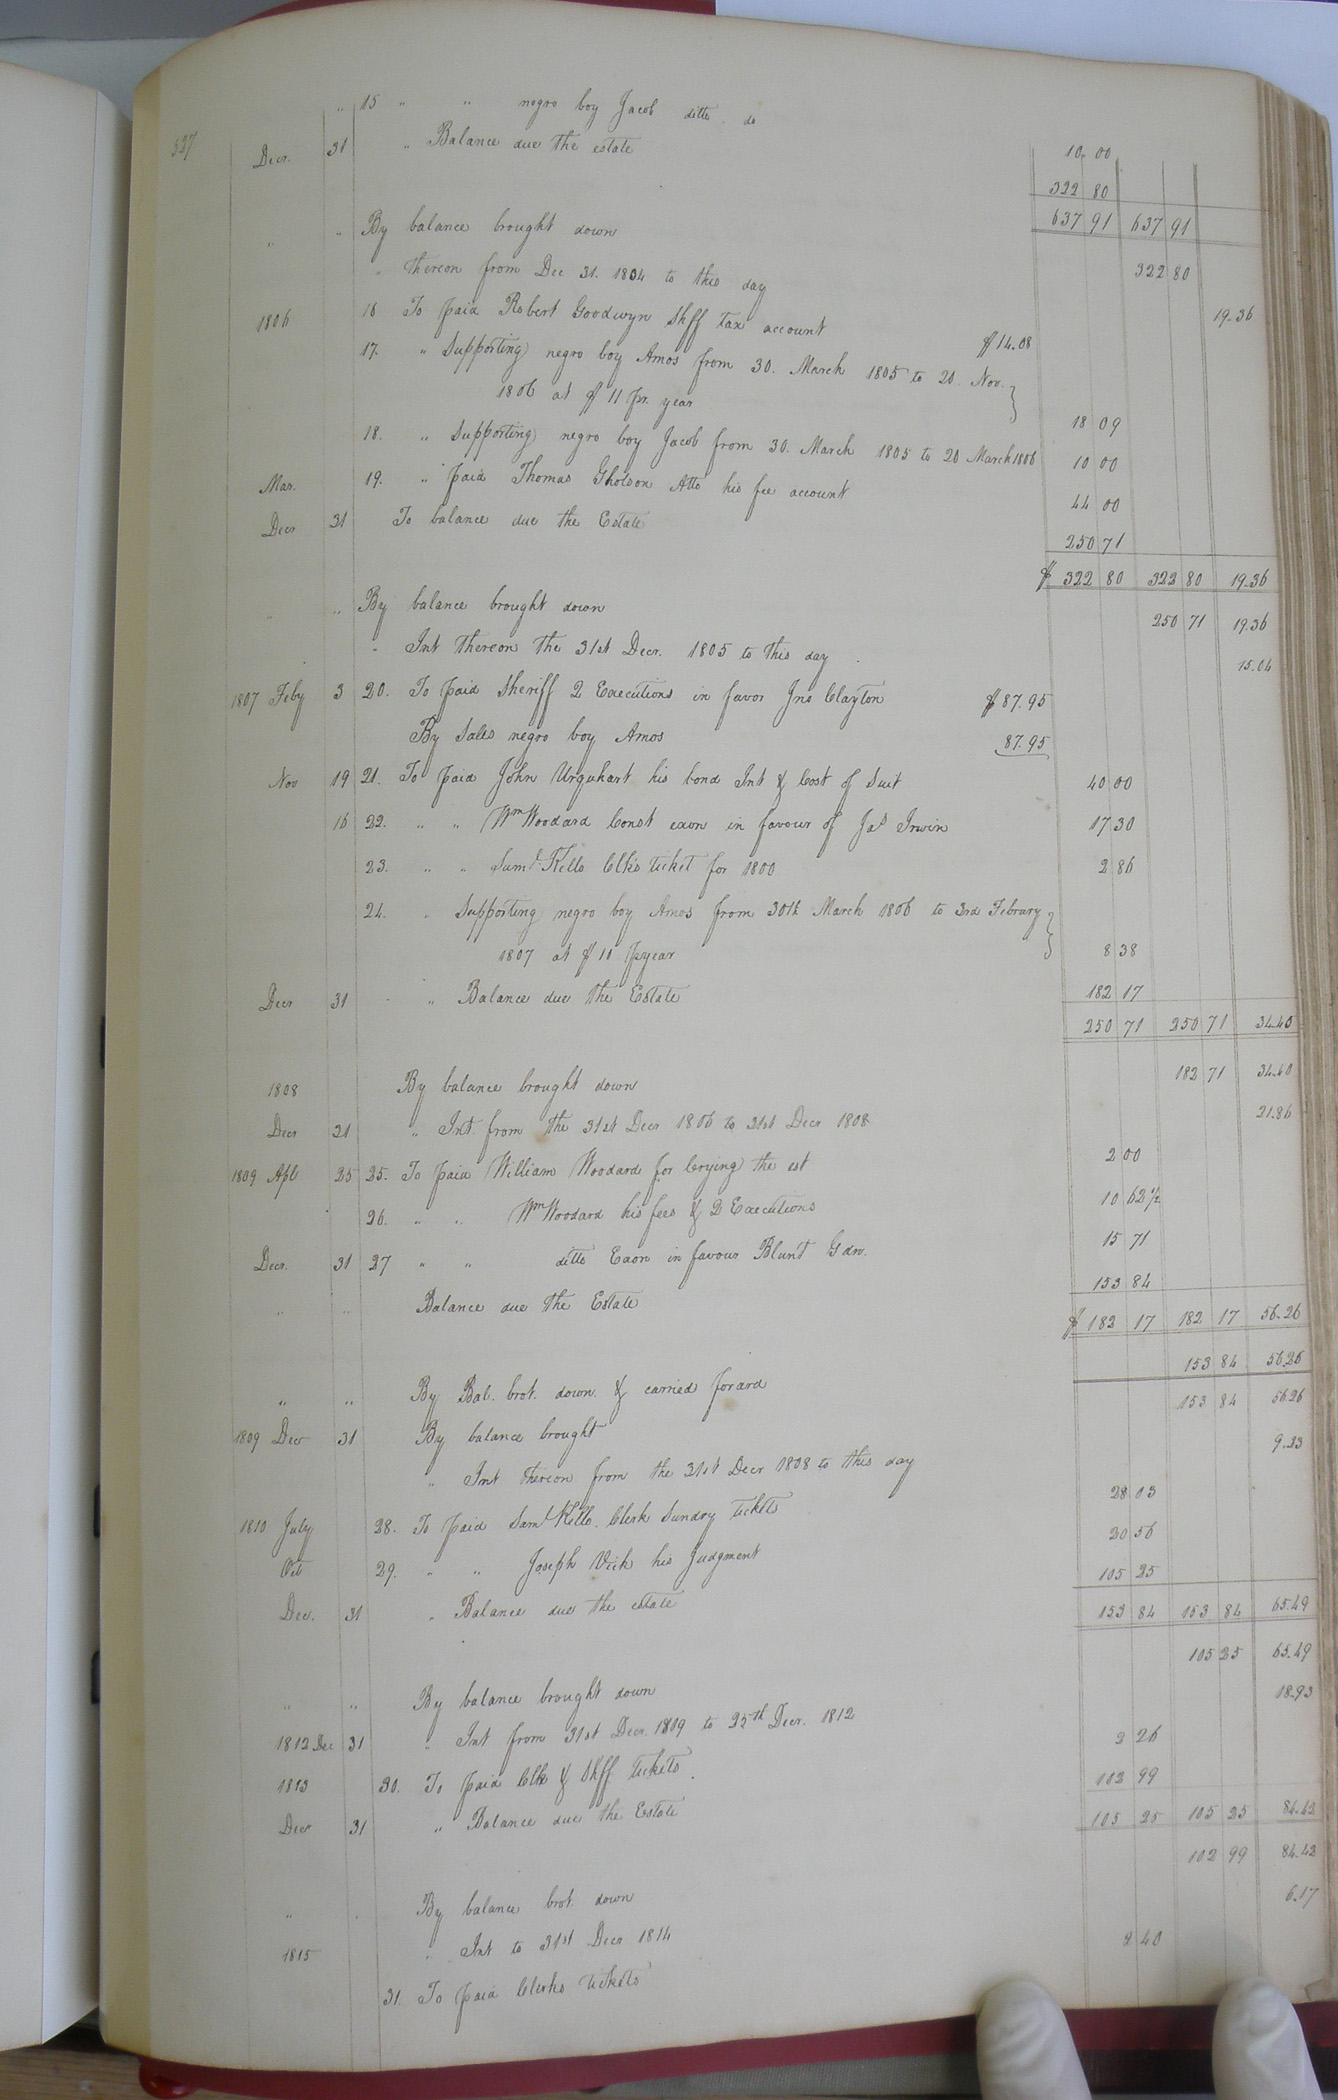 " 15 " " negro boy Jacob ditto do 10.00
537 Decr. 31 " Balance due the estate 322 80
637 91 637 91
" " By balance brought down 322 80
" thereon from Dec 31. 1804 to this day 19.36
1806 16 To paid Robert Goodwyn Shff tax account $14.08
17. " Supporting negro boy Amos from 30. March 1805 to 20. Nov.
1806 at $11 pr. year 18 09
18. " Supporting negro boy Jacob from 30. March 1805 to 20 March 1806 10 00
Mar. 19. " paid Thomas Gholson Atto his fee account 44 00
Decr 31 To balance due the Estate 250 71
$ 322 80 322 80 19.36
" " By balance brought down 250 71 19.36
" Int thereon the 31st Decr. 1805 to this day 15.04
1807 Feby 3 20. To paid Sheriff 2 Executions in favor Jno Clayton $87.95
By Sales negro boy Amos 87.95
Nov 19 21. To paid John Urquhart his bond Int & Cost of Suit 40 00
16 22. " " Wm Woodard Const exon in favour of Jas Irwin 17 30
23. " " Saml. Kello Clks ticket for 1800 2 86
24. " Supporting negro boy Amos from 30th March 1806 to 3rd Febrary
1807 at $10 pr year 8 38
Decr 31 " Balance due the Estate 182 17
250 71 250 71 34.40
1808 By balance brought down 182 71 34.40
Decr 31 " Int from the 31st Decr 1806 to 31st Decr 1808 21.86
1809 Apl 25 25. To paid William Woodard for Crying the est 2 00
26. " " Wm Woodard his fees & 2 Executions 10 62½
Decr. 31 27 " " ditto Exon in favour Blunt Gdn. 15 71
" " Balance due the Estate 153 84
$ 182 17 182 17 56.26
" " By Bal. brot. down & carried forard 153 84 56.26
1809 Decr 31 By balance brought 153 84 56.26
" Int thereon from the 31st Decr 1808 to this day 9.23
1810 July 28. To paid Saml Kello. Clerk Sundry tickets 28 03
Oct 29. " " Joseph Vick his Judgment 20 56
Dec. 31 " Balance due the estate 105 25
153 84 153 84 65.49
" " By balance brought down 105 25 65.49
1812 Dec 31 " Int from 31st Decr. 1809 to 25th Decr. 1812 18.93
1813 30. To paid Clk & Shff tickets 2 26
Decr 31 " Balance due the Estate 102 99
105 25 105 25 84.42
" By balance brot. down 102 99 84.42
1815 " Int to 31st Decr 1814 6.17
31. To paid Clerks tickets 2 40